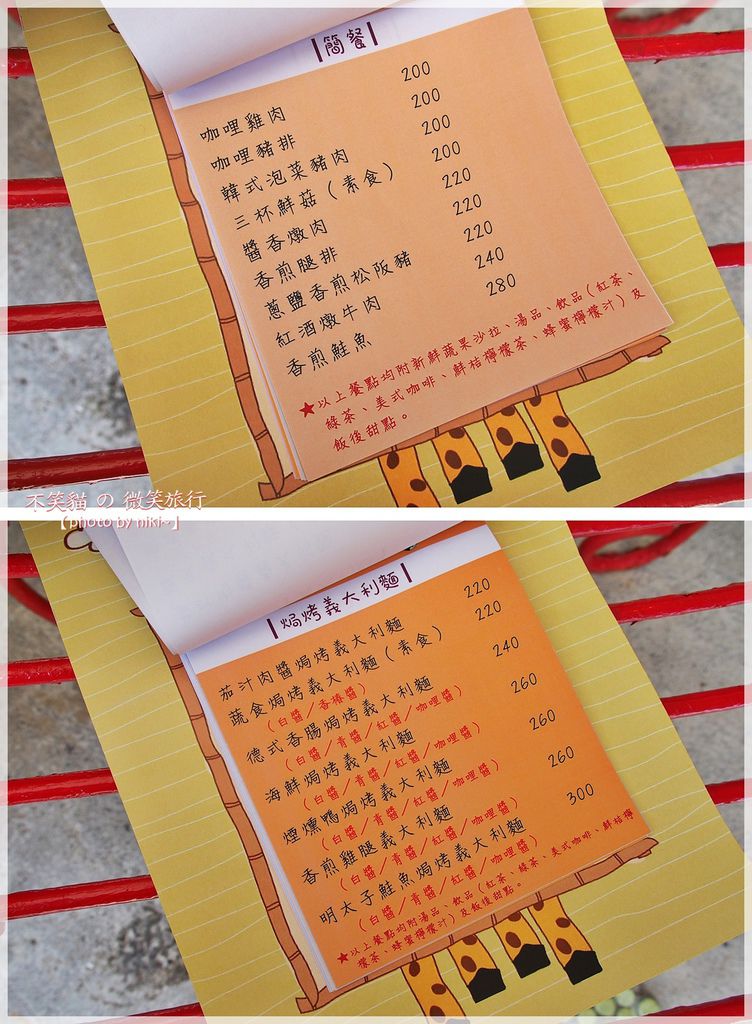 簡餐
咖哩雞肉 200
咖哩豬排 200
韓式泡菜豬肉 200
三杯鮮菇（素食） 200
醬香燉肉 220
香煎腿排 220
蔥鹽香煎松阪豬 220
紅酒燉牛肉 240
香煎鮭魚 280
★以上餐點均附新鮮蔬果沙拉、湯品、飲品(紅茶、
綠茶、美式咖啡、鮮桔檸檬茶、蜂蜜檸檬汁)及
飯後甜點。
不笑貓 の 微笑旅行
【photo by niki~】
焗烤義大利麵
茄汁肉醬焗烤義大利麵 220
蔬食焗烤義大利麵（素食） 220
（白醬／香椿醬）
德式香腸焗烤義大利麵 240
（白醬／青醬／紅醬／咖哩醬）
海鮮焗烤義大利麵 260
（白醬／青醬／紅醬／咖哩醬）
煙燻鴨焗烤義大利麵 260
（白醬／青醬／紅醬／咖哩醬）
香煎雞腿義大利麵 260
（白醬／青醬／紅醬／咖哩醬）
明太子鮭魚焗烤義大利麵 300
（白醬／青醬／紅醬／咖哩醬）
★以上餐點均附湯品、飲品(紅茶、綠茶、美式咖啡、鮮桔檸
檬茶、蜂蜜檸檬汁)及飯後甜點。